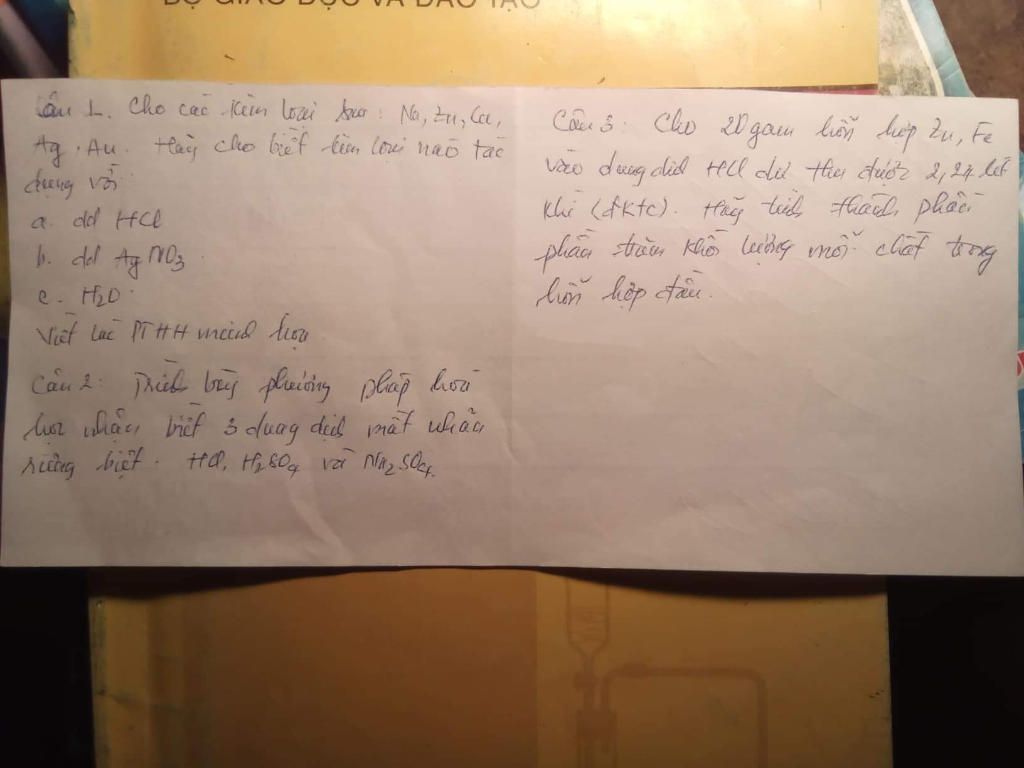 BỘ GIÁO DỤC VÀ ĐÀO TẠO
Câu 1. Cho các kim loại sau: Na, Zn, Cu,
Ag, Au. Hãy cho biết kim loại nào tác
dụng với
a. dd HCl
b. dd AgNO3.
c. H2O.
Viết các PTHH minh họa
Câu 2: Trình bày phương pháp hoá
học nhận biết 3 dung dịch mất nhãn
riêng biệt. HCl, H2SO4 và Na2SO4.
Câu 3: Cho 20 gam hỗn hợp Zn, Fe
vào dung dịch HCl dư thu được 2,24 lít
khí (đktc). Hãy tính thành phần
phần trăm khối lượng mỗi chất trong
hỗn hợp đầu.